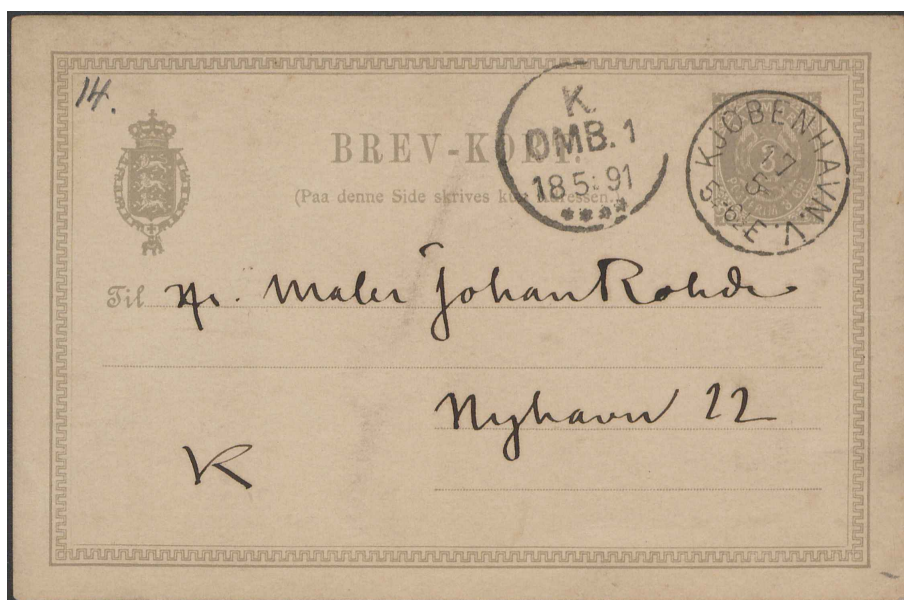 14.
BREV-KORT.
(Paa denne Side skrives kun Adressen.)
K
OMB. 1
18.5.91
KJØBENHAVN.V.
17
5
5-6 E
Til Hr. Maler Johan Rohde
Nyhavn 22
K